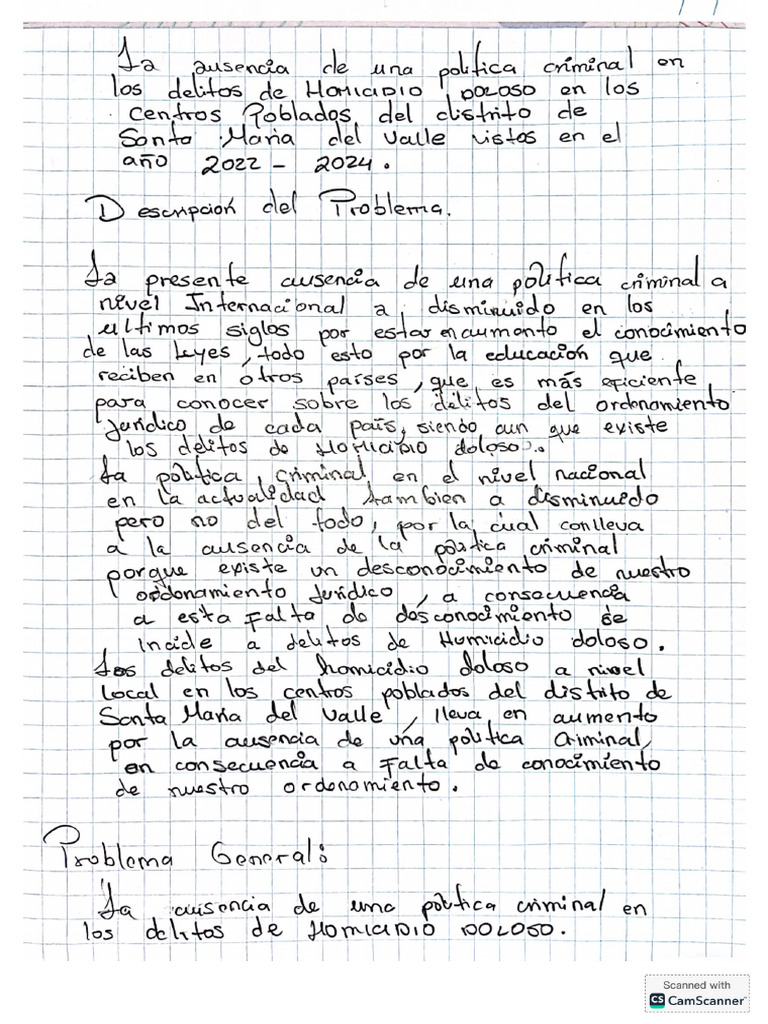 La ausencia de una política criminal en
los delitos de HOMICIDIO DOLOSO en los
Centros Poblados del distrito de
Santa María del Valle vistos en el
año 2022 - 2024.
Descripción del Problema.
La presente ausencia de una política criminal a
nivel Internacional a disminuido en los
ultimos siglos por estar en aumento el conocimiento
de las leyes, todo esto por la educación que
reciben en otros países, que es más eficiente
para conocer sobre los delitos del ordenamiento
Jurídico de cada país, siendo aun que existe
los delitos de HOMICIDIO doloso.
La política criminal en el nivel nacional
en la actualidad tambien a disminuido
pero no del todo, por la cual conlleva
a la ausencia de la política criminal
porque existe un desconocimiento de nuestro
ordonamiento Jurídico, a consecuencia
a esta Falta de desconocimiento se
incide a delitos de Homicidio doloso.
Los delitos del homicidio doloso a nivel
local en los centros poblados del distrito de
Santa María del Valle, lleva en aumento
por la ausencia de una política Criminal,
en consecuencia a Falta de conocimiento
de nuestro ordenamiento.
Problema General:
La ausencia de una política criminal en
los delitos de HOMICIDIO DOLOSO.
Scanned with
CS CamScanner